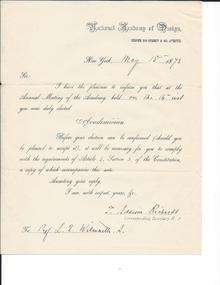 National Academy of Design,
New York, May 15th 1873
Sir:
I have the pleasure to inform you that at the
Annual Meeting of the Academy, held on the 14th inst
you were duly elected
Academician
Before your election can be confirmed (should you
be pleased to accept it), it will be necessary for you to comply
with the requirements of Article, Section 3, of the Constitution,
a copy of which accompanies this note.
Awaiting your reply,
I am, with respect, yours, &c.
T. Addison Richards
Corresponding Secretary N. A.
To Prof. L. G.